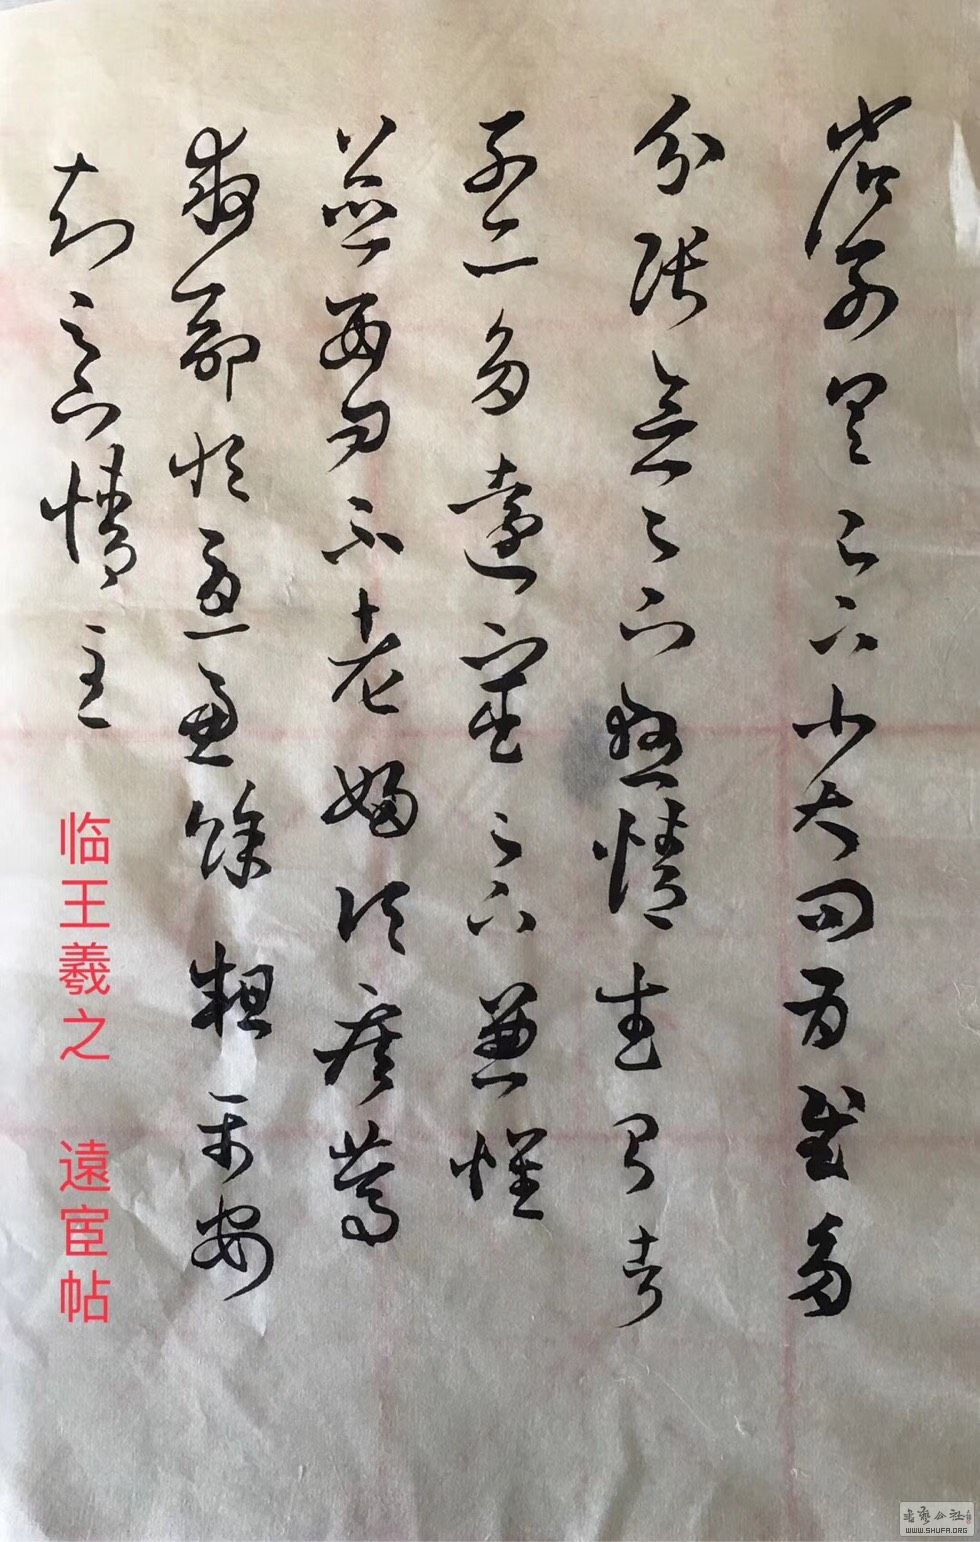 省別具足下小大問為慰多
分張念足下懸情武昌諸
子亦多遠宦足下兼懷
並數問不老婦頃疾篤
救命恒憂慮餘粗平安
知足下情至
临王羲之 遠宦帖
書藝公社
WWW.SHUFA.ORG